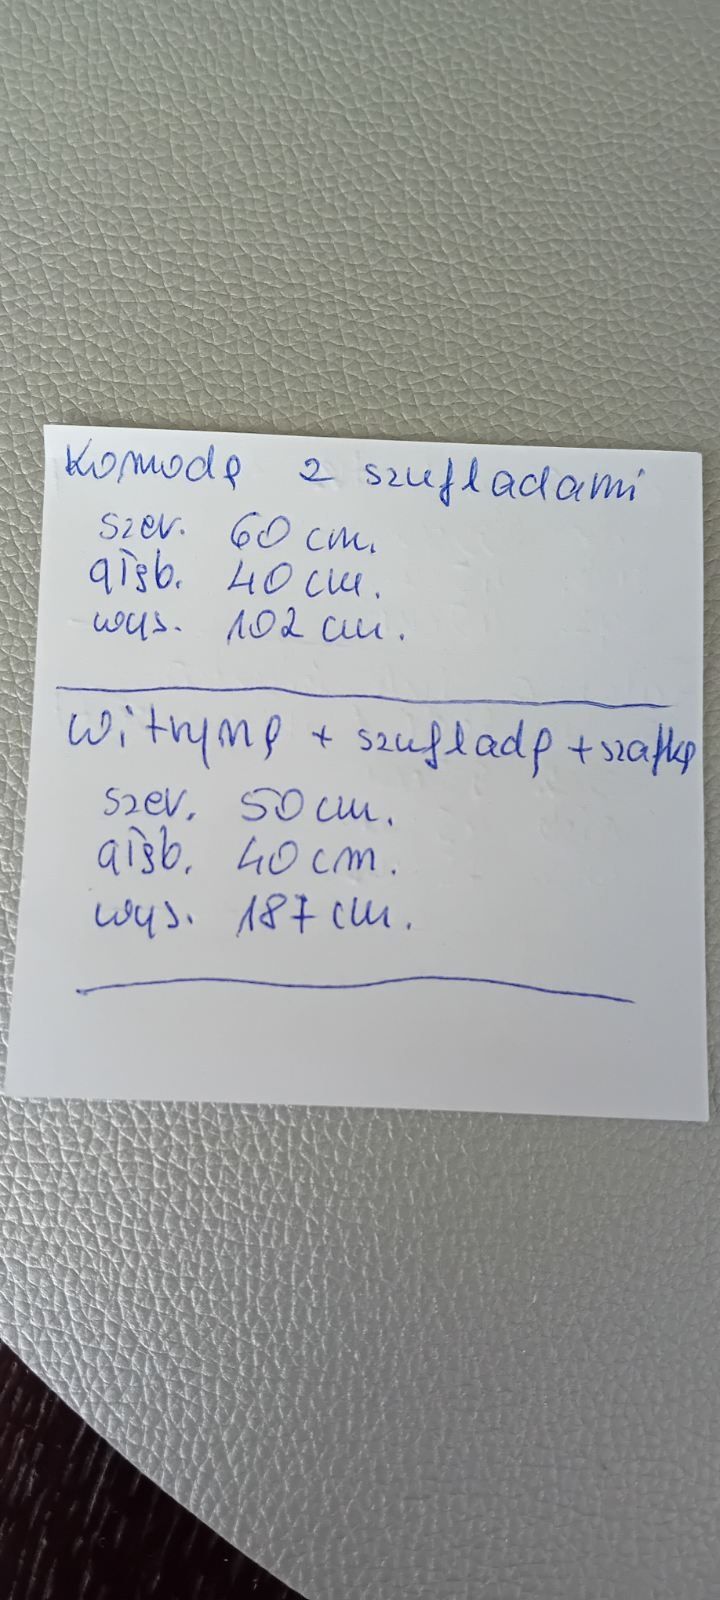 Komodę z szufladami
szer. 60 cm.
głęb. 40 cm.
wys. 102 cm.
Witrynę + szufladę + szafkę
szer. 50 cm.
głęb. 40 cm.
wys. 187 cm.